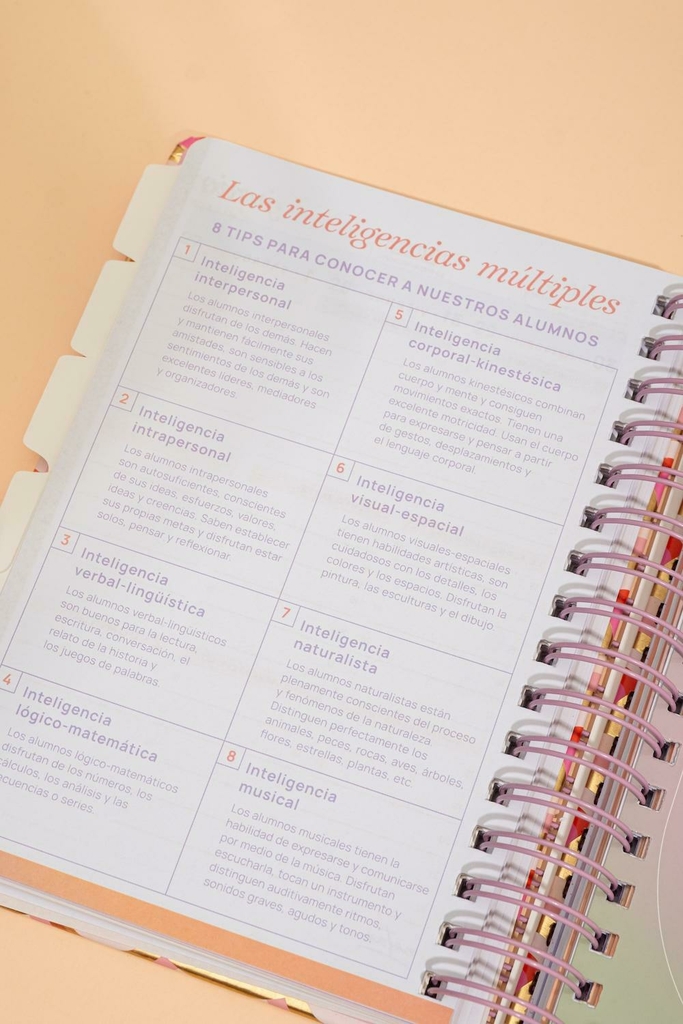 Las inteligencias múltiples
8 TIPS PARA CONOCER A NUESTROS ALUMNOS
1
Inteligencia
interpersonal
Los alumnos interpersonales
disfrutan de los demás. Hacen
y mantienen fácilmente sus
amistades, son sensibles a los
sentimientos de los demás y son
excelentes líderes, mediadores
y organizadores.
2
Inteligencia
intrapersonal
Los alumnos intrapersonales
son autosuficientes, conscientes
de sus ideas, esfuerzos, valores,
ideas y creencias. Saben establecer
sus propias metas y disfrutan estar
solos, pensar y reflexionar.
3
Inteligencia
verbal-lingüística
Los alumnos verbal-lingüísticos
son buenos para la lectura,
escritura, conversación, el
relato de la historia y
los juegos de palabras.
4
Inteligencia
lógico-matemática
Los alumnos lógico-matemáticos
disfrutan de los números, los
cálculos, los análisis y las
ecuencias o series.
5
Inteligencia
corporal-kinestésica
Los alumnos kinestésicos combinan
cuerpo y mente y consiguen
movimientos exactos. Tienen una
excelente motricidad. Usan el cuerpo
para expresarse y pensar a partir
de gestos, desplazamientos y
el lenguaje corporal.
6
Inteligencia
visual-espacial
Los alumnos visuales-espaciales
tienen habilidades artísticas, son
cuidadosos con los detalles, los
colores y los espacios. Disfrutan la
pintura, las esculturas y el dibujo.
7
Inteligencia
naturalista
Los alumnos naturalistas están
plenamente conscientes del proceso
y fenómenos de la naturaleza.
Distinguen perfectamente los
animales, peces, rocas, aves, árboles,
flores, estrellas, plantas, etc.
8
Inteligencia
musical
Los alumnos musicales tienen la
habilidad de expresarse y comunicarse
por medio de la música. Disfrutan
escucharla, tocan un instrumento y
distinguen auditivamente ritmos,
sonidos graves, agudos y tonos.